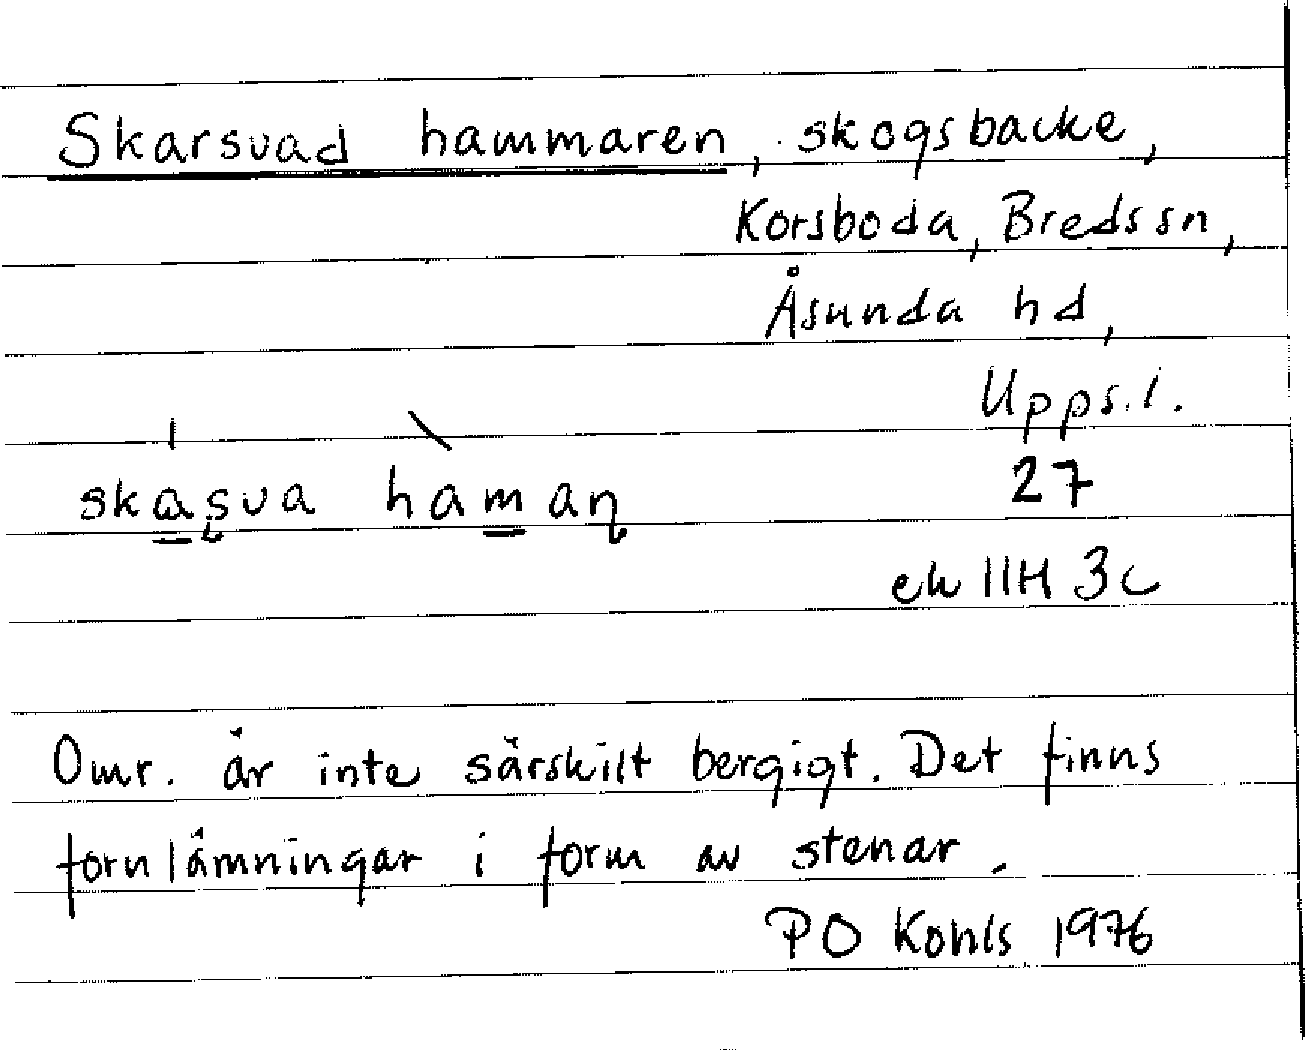 Skarsvad hammaren, skogsbacke,
Korsboda, Breds sn,
Åsunda hd,
Upps.l.
skaʂva hamaɳ 27
ek 11H 3c
Omr. är inte särskilt bergigt. Det finns
fornlämningar i form av stenar.
PO Kohls 1976